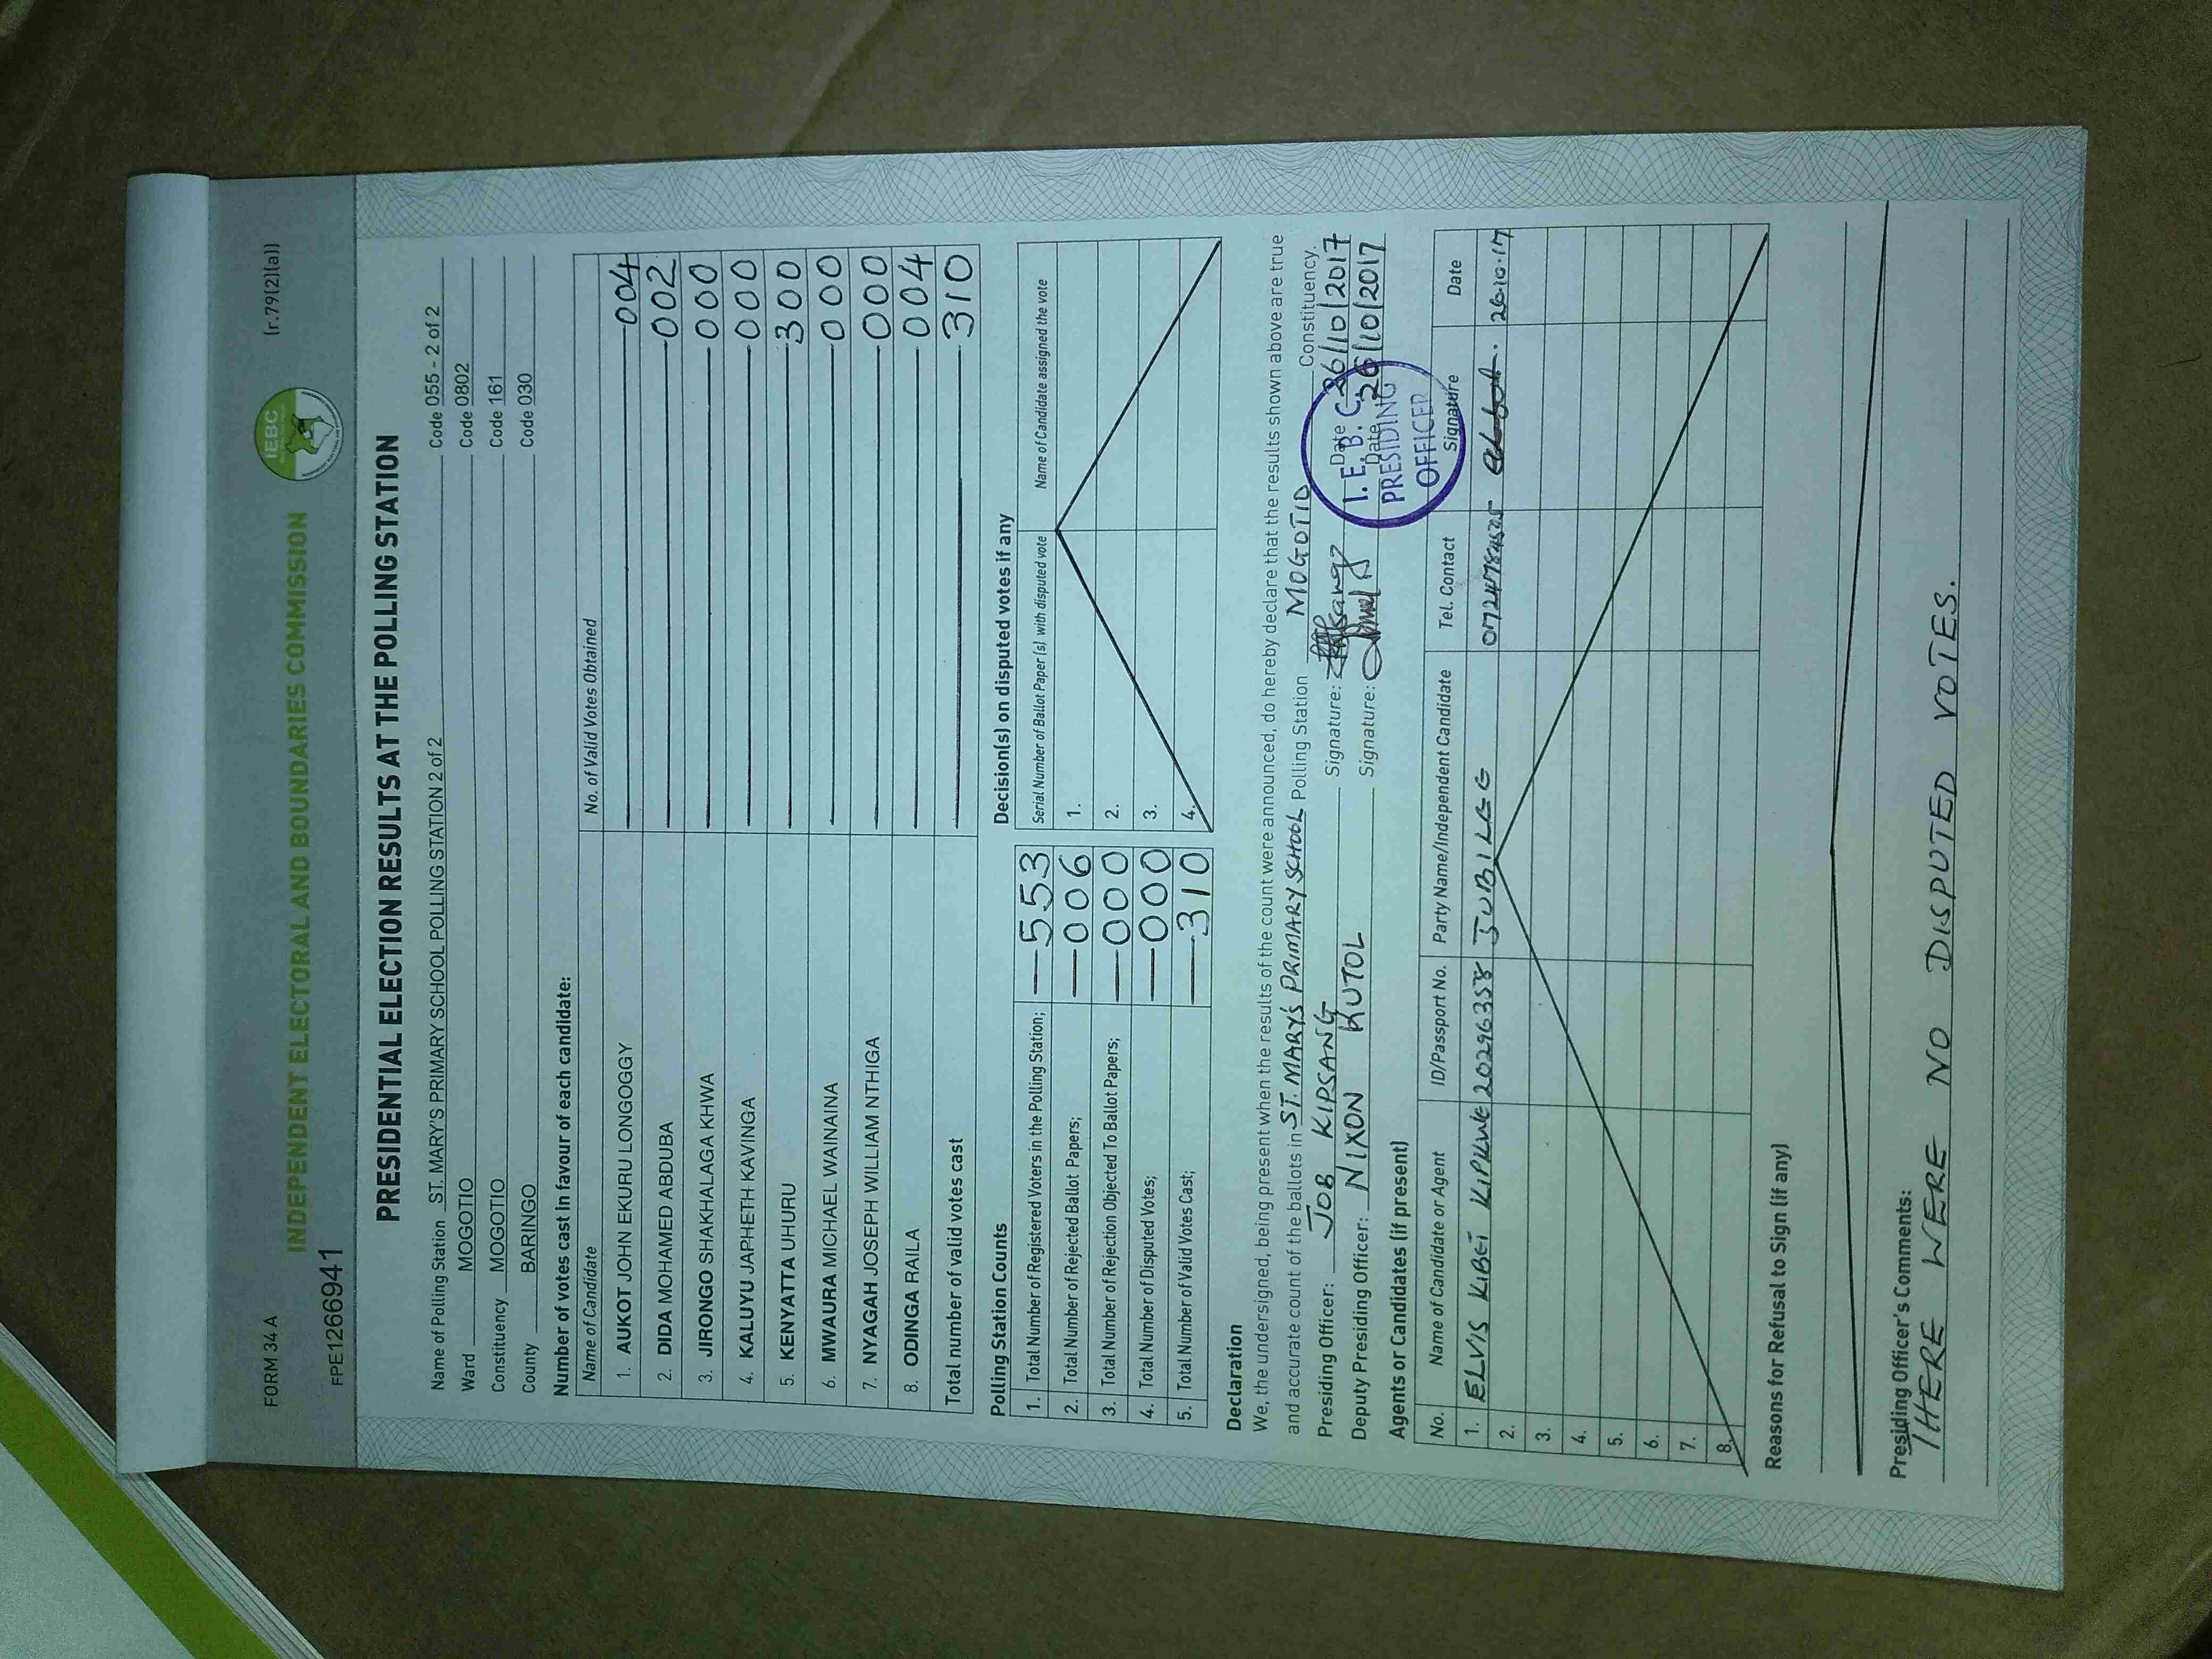 FORM 34 A
(r.79(2)(a))
IEBC
INDEPENDENT ELECTORAL AND BOUNDARIES COMMISSION
FPE1266941
PRESIDENTIAL ELECTION RESULTS AT THE POLLING STATION
Name of Polling Station ST. MARY'S PRIMARY SCHOOL POLLING STATION 2 of 2 Code 055 - 2 of 2
Ward MOGOTIO Code 0802
Constituency MOGOTIO Code 161
County BARINGO Code 030
Number of votes cast in favour of each candidate:
Name of Candidate No. of Valid Votes Obtained
1. AUKOT JOHN EKURU LONGOGGY 004
2. DIDA MOHAMED ABDUBA 002
3. JIRONGO SHAKHALAGA KHWA 000
4. KALUYU JAPHETH KAVINGA 000
5. KENYATTA UHURU 300
6. MWAURA MICHAEL WAINAINA 000
7. NYAGAH JOSEPH WILLIAM NTHIGA 000
8. ODINGA RAILA 004
Total number of valid votes cast 310
Polling Station Counts
1. Total Number of Registered Voters in the Polling Station; 553
2. Total Number of Rejected Ballot Papers; 006
3. Total Number of Rejection Objected To Ballot Papers; 000
4. Total Number of Disputed Votes; 000
5. Total Number of Valid Votes Cast; 310
Decision(s) on disputed votes if any
Serial Number of Ballot Paper (s) with disputed vote Name of Candidate assigned the vote
1.
2.
3.
4.
Declaration
We, the undersigned, being present when the results of the count were announced, do hereby declare that the results shown above are true
and accurate count of the ballots in ST. MARY'S PRIMARY SCHOOL Polling Station MOGOTIO Constituency.
Presiding Officer: JOB KIPSANG Signature: Date 26/10/2017
Deputy Presiding Officer: NIXON KUTOL Signature: Date 26/10/2017
I.E.B.C.
PRESIDING
OFFICER
Agents or Candidates (if present)
No. Name of Candidate or Agent ID/Passport No. Party Name/Independent Candidate Tel. Contact Signature Date
1. ELVIS KIBET 20296358 JUBILEE 26.10.17
2.
3.
4.
5.
6.
7.
8.
Reasons for Refusal to Sign (if any)
Presiding Officer's Comments:
THERE WERE NO DISPUTED VOTES.